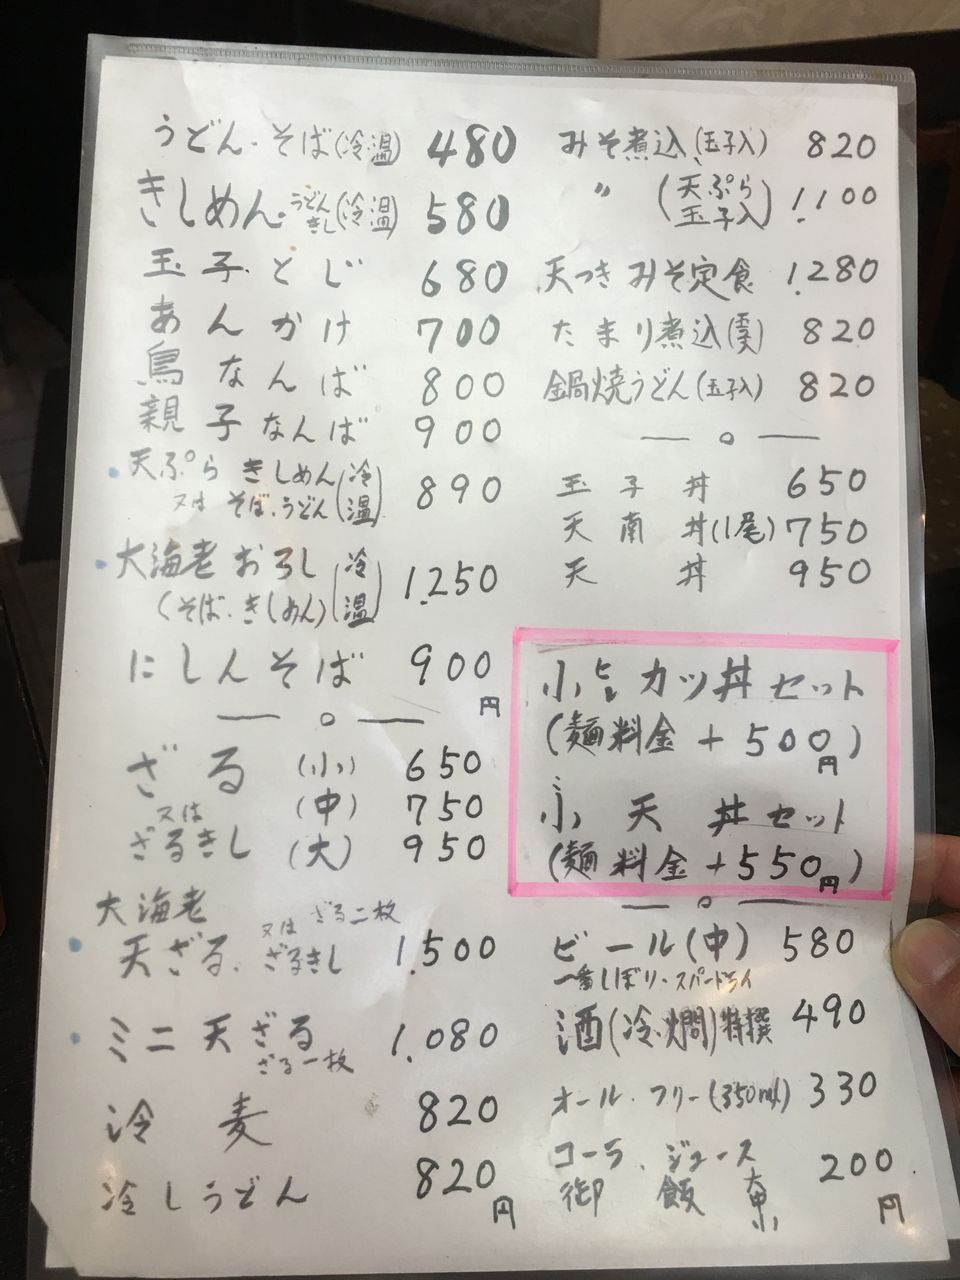 うどん・そば(冷温) 480
きしめん・うどんきし(冷温) 580
玉子とじ 680
あんかけ 700
鳥なんば 800
親子なんば 900
天ぷらきしめん(冷温) 890
又はそば、うどん
大海老おろし(冷温) 1,250
(そば・きしめん)
にしんそば 900円
ざる (小) 650
又は (中) 750
ざるきし (大) 950
大海老
天ざる、又はざるきし ざる二枚 1,500
ミニ天ざる 1,080
ざる一枚
冷麦 820
冷しうどん 820円
みそ煮込(玉子入) 820
〃 (天ぷら玉子入) 1,100
天つきみそ定食 1,280
たまり煮込 820
鍋焼うどん(玉子入) 820
玉子丼 650
天南丼(1尾) 750
天丼 950
小カツ丼セット
(麺料金+500円)
小天丼セット
(麺料金+550円)
ビール(中) 580
一番しぼり・スパードライ
酒(冷・燗)特撰 490
オール・フリー(350ml) 330
コーラ、ジュース 200円
御飯 大小